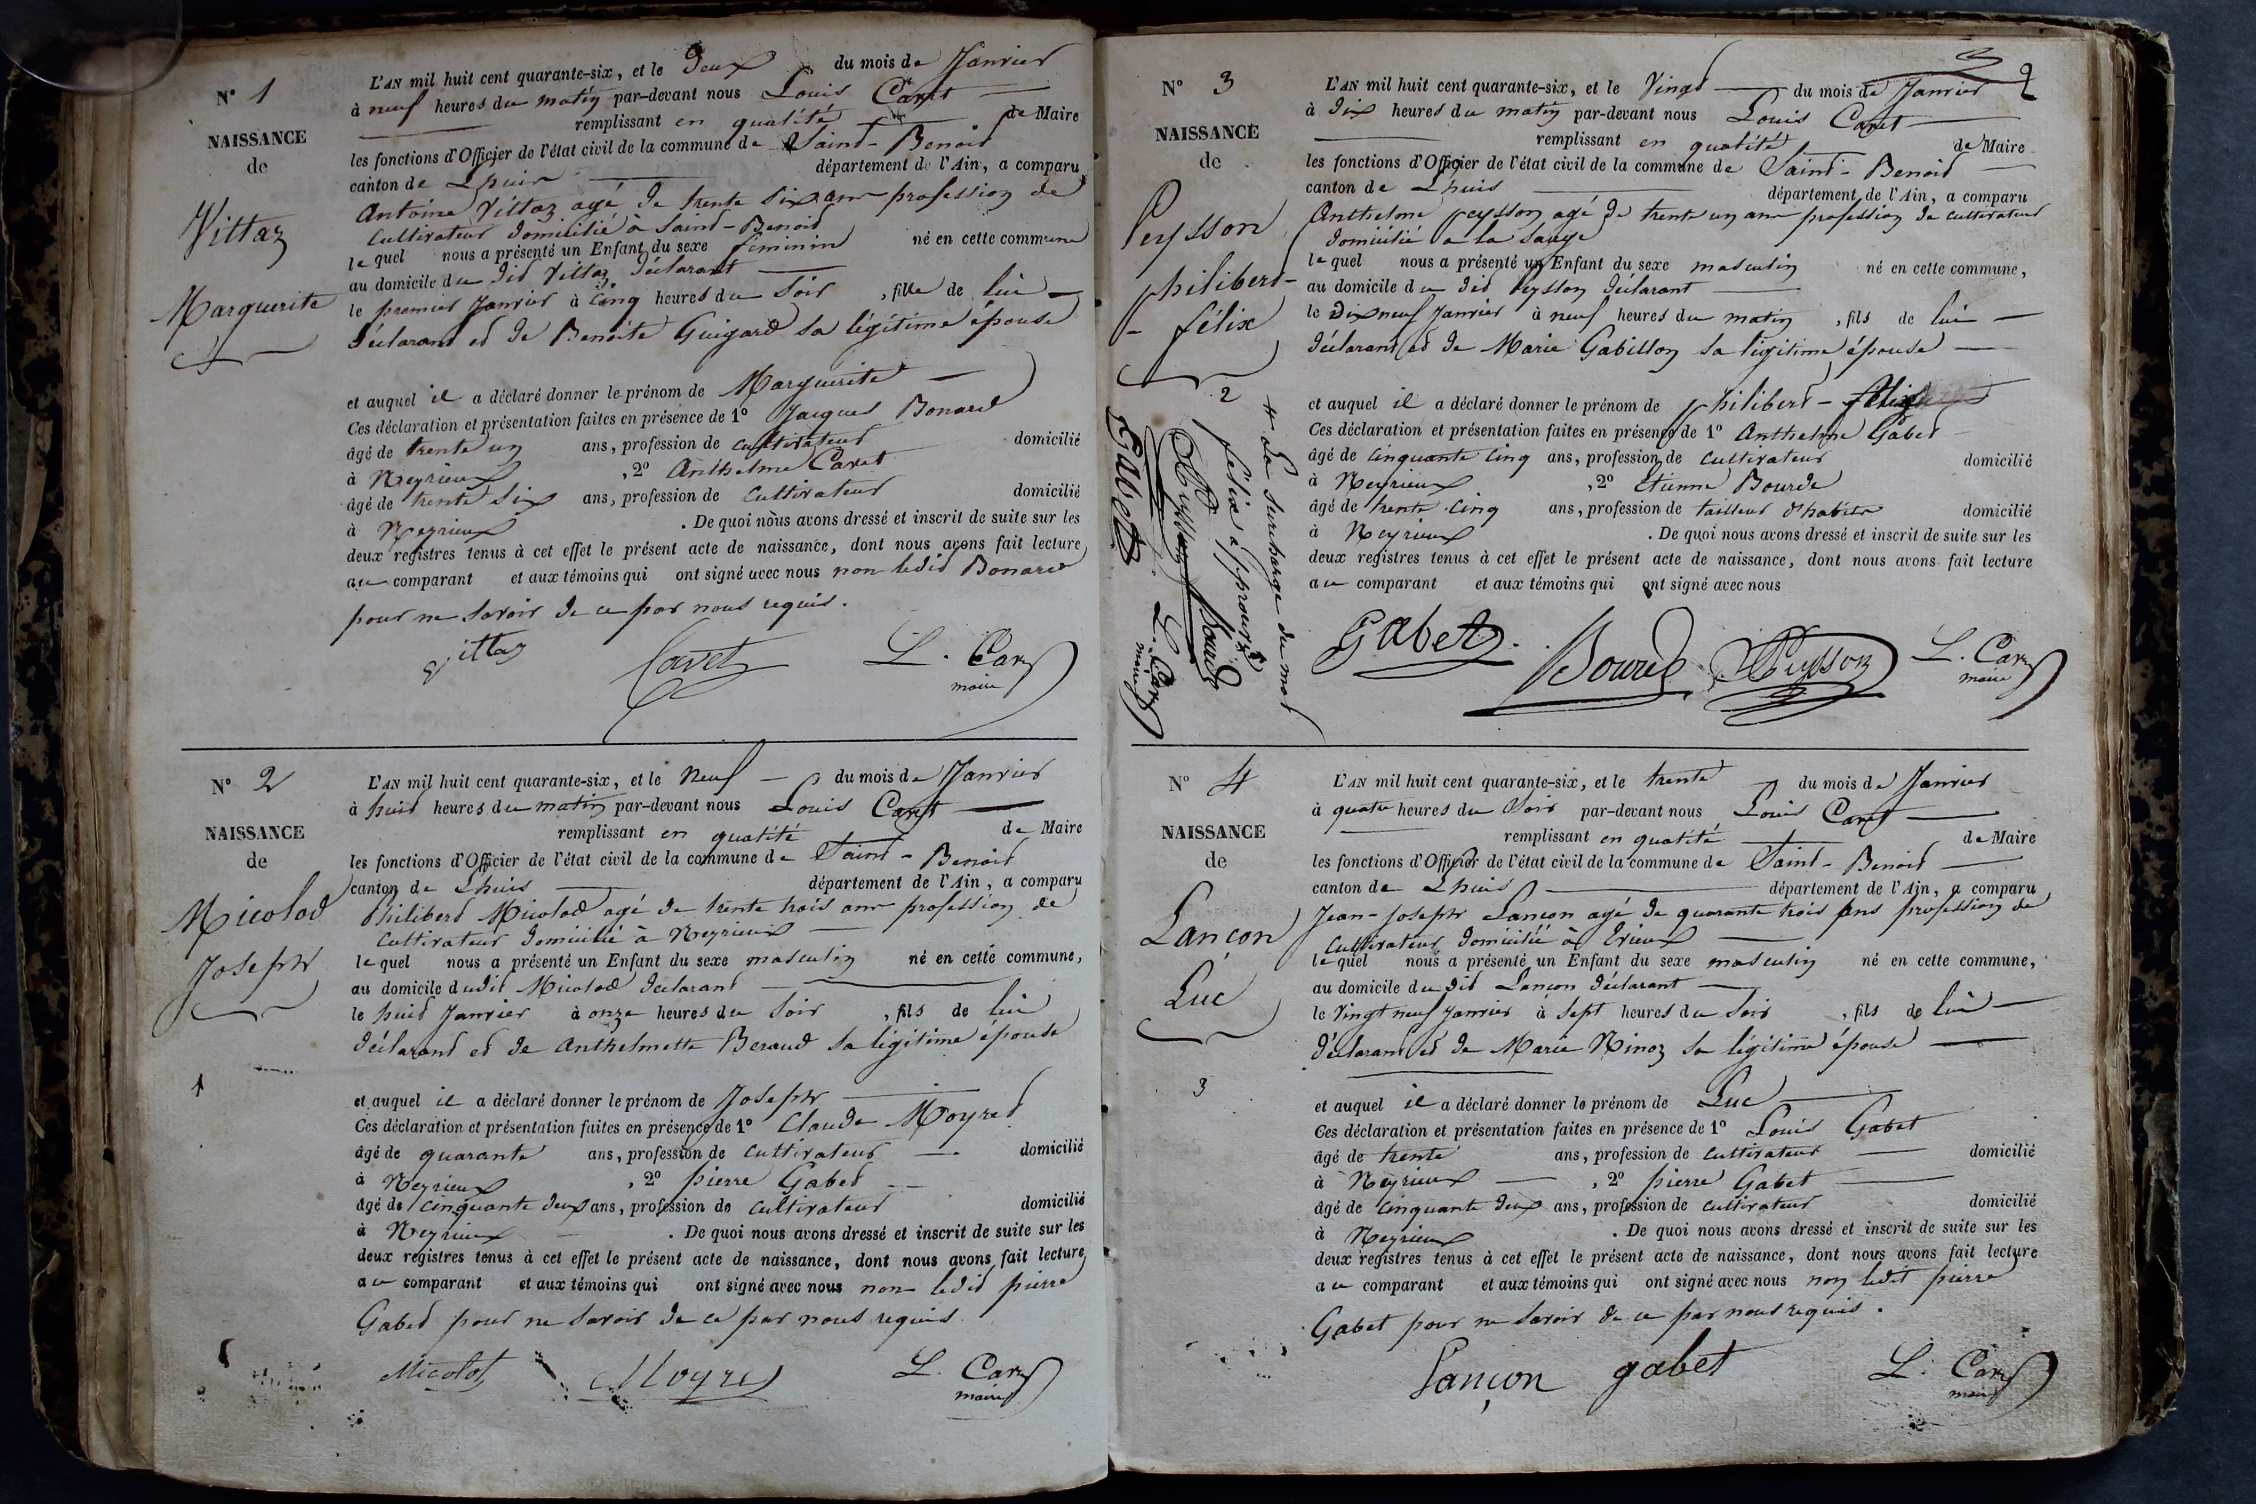 N° 1
NAISSANCE
de
Vittaz
Marguerite
L'AN mil huit cent quarante-six, et le Deux du mois de Janvier
à neuf heures du matin par-devant nous Louis Caret
remplissant en qualité de Maire
les fonctions d'Officier de l'état civil de la commune de Saint-Benoit
canton de Lhuis département de l'Ain, a comparu
Antoine Vittaz agé de trente six ans profession de
cultivateur domicilié à Saint-Benoit
lequel nous a présenté un Enfant du sexe féminin né en cette commune
au domicile du dit Vittaz déclarant
le premier Janvier à cinq heures du soir, fille de lui
déclarant et de Benoite Guigard sa légitime épouse
et auquel il a déclaré donner le prénom de Marguerite
Ces déclaration et présentation faites en présence de 1° Jacques Bonard
âgé de trente un ans, profession de cultivateur domicilié
à Neyrieux, 2° Anthelme Caret
âgé de trente six ans, profession de cultivateur domicilié
à Neyrieux. De quoi nous avons dressé et inscrit de suite sur les
deux registres tenus à cet effet le présent acte de naissance, dont nous avons fait lecture
au comparant et aux témoins qui ont signé avec nous non ledit Bonard
pour ne savoir de ce par nous requis.
Vittaz Caret L. Caret
maire
N° 2
NAISSANCE
de
Micolod
Joseph
1
L'AN mil huit cent quarante-six, et le neuf du mois de Janvier
à huit heures du matin par-devant nous Louis Caret
remplissant en qualité de Maire
les fonctions d'Officier de l'état civil de la commune de Saint-Benoit
canton de Lhuis département de l'Ain, a comparu
Philibert Micolod agé de trente trois ans profession de
cultivateur domicilié à Neyrieux
lequel nous a présenté un Enfant du sexe masculin né en cette commune,
au domicile dudit Micolod déclarant
le huit Janvier à onze heures du soir, fils de lui
déclarant et de Anthelmette Beraud sa légitime épouse
et auquel il a déclaré donner le prénom de Joseph
Ces déclaration et présentation faites en présence de 1° Claude Moyret
âgé de quarante ans, profession de cultivateur domicilié
à Neyrieux, 2° pierre Gabet
âgé de cinquante deux ans, profession de cultivateur domicilié
à Neyrieux. De quoi nous avons dressé et inscrit de suite sur les
deux registres tenus à cet effet le présent acte de naissance, dont nous avons fait lecture
au comparant et aux témoins qui ont signé avec nous non ledit pierre
Gabet pour ne savoir de ce par nous requis
Micolod Moyret L. Caret
maire
2
N° 3
NAISSANCE
de
Peysson
philibert-
- félix
2
# La surcharge du mot
félix approuvé
Peysson Bourde
Gabet L. Caret
maire
L'AN mil huit cent quarante-six, et le Vingt du mois de Janvier
à dix heures du matin par-devant nous Louis Caret
remplissant en qualité de Maire
les fonctions d'Officier de l'état civil de la commune de Saint-Benoit
canton de Lhuis département de l'Ain, a comparu
Anthelme peysson agé de trente un ans profession de cultivateur
domicilié a la sauge
lequel nous a présenté un Enfant du sexe masculin né en cette commune,
au domicile du dit peysson déclarant
le Dix neuf Janvier à neuf heures du matin, fils de lui
déclarant et de Marie Gabillon sa légitime épouse
et auquel il a déclaré donner le prénom de philibert-félix
Ces déclaration et présentation faites en présence de 1° Anthelme Gabet
âgé de cinquante cinq ans, profession de cultivateur domicilié
à Neyrieux, 2° etienne Bourde
âgé de trente cinq ans, profession de tailleur d'habits domicilié
à Neyrieux. De quoi nous avons dressé et inscrit de suite sur les
deux registres tenus à cet effet le présent acte de naissance, dont nous avons fait lecture
au comparant et aux témoins qui ont signé avec nous
Gabet Bourde Peysson L. Caret
maire
N° 4
NAISSANCE
de
Lançon
Luc
3
L'AN mil huit cent quarante-six, et le trente du mois de Janvier
à quatre heures du soir par-devant nous Louis Caret
remplissant en qualité de Maire
les fonctions d'Officier de l'état civil de la commune de Saint-Benoit
canton de Lhuis département de l'Ain, a comparu
Jean-Joseph Lançon agé de quarante trois ans profession de
cultivateur domicilié à Erieux
lequel nous a présenté un Enfant du sexe masculin né en cette commune,
au domicile du dit Lançon déclarant
le vingt neuf Janvier à sept heures du soir, fils de lui
déclarant et de Marie Ninoz sa légitime épouse
et auquel il a déclaré donner le prénom de Luc
Ces déclaration et présentation faites en présence de 1° Louis Gabet
âgé de trente ans, profession de cultivateur domicilié
à Neyrieux, 2° pierre Gabet
âgé de cinquante deux ans, profession de cultivateur domicilié
à Neyrieux. De quoi nous avons dressé et inscrit de suite sur les
deux registres tenus à cet effet le présent acte de naissance, dont nous avons fait lecture
au comparant et aux témoins qui ont signé avec nous non ledit pierre
Gabet pour ne savoir de ce par nous requis.
Lançon gabet L. Caret
maire